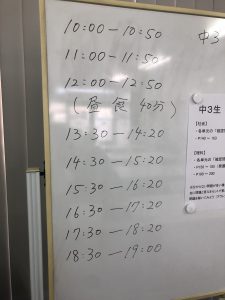 10:00－10:50
中3
11:00－11:50
12:00－12:50
(昼食40分)
13:30－14:20
14:30－15:20
15:30－16:20
16:30－17:20
17:30－18:20
18:30－19:00
中3生
【社会】
【理科】